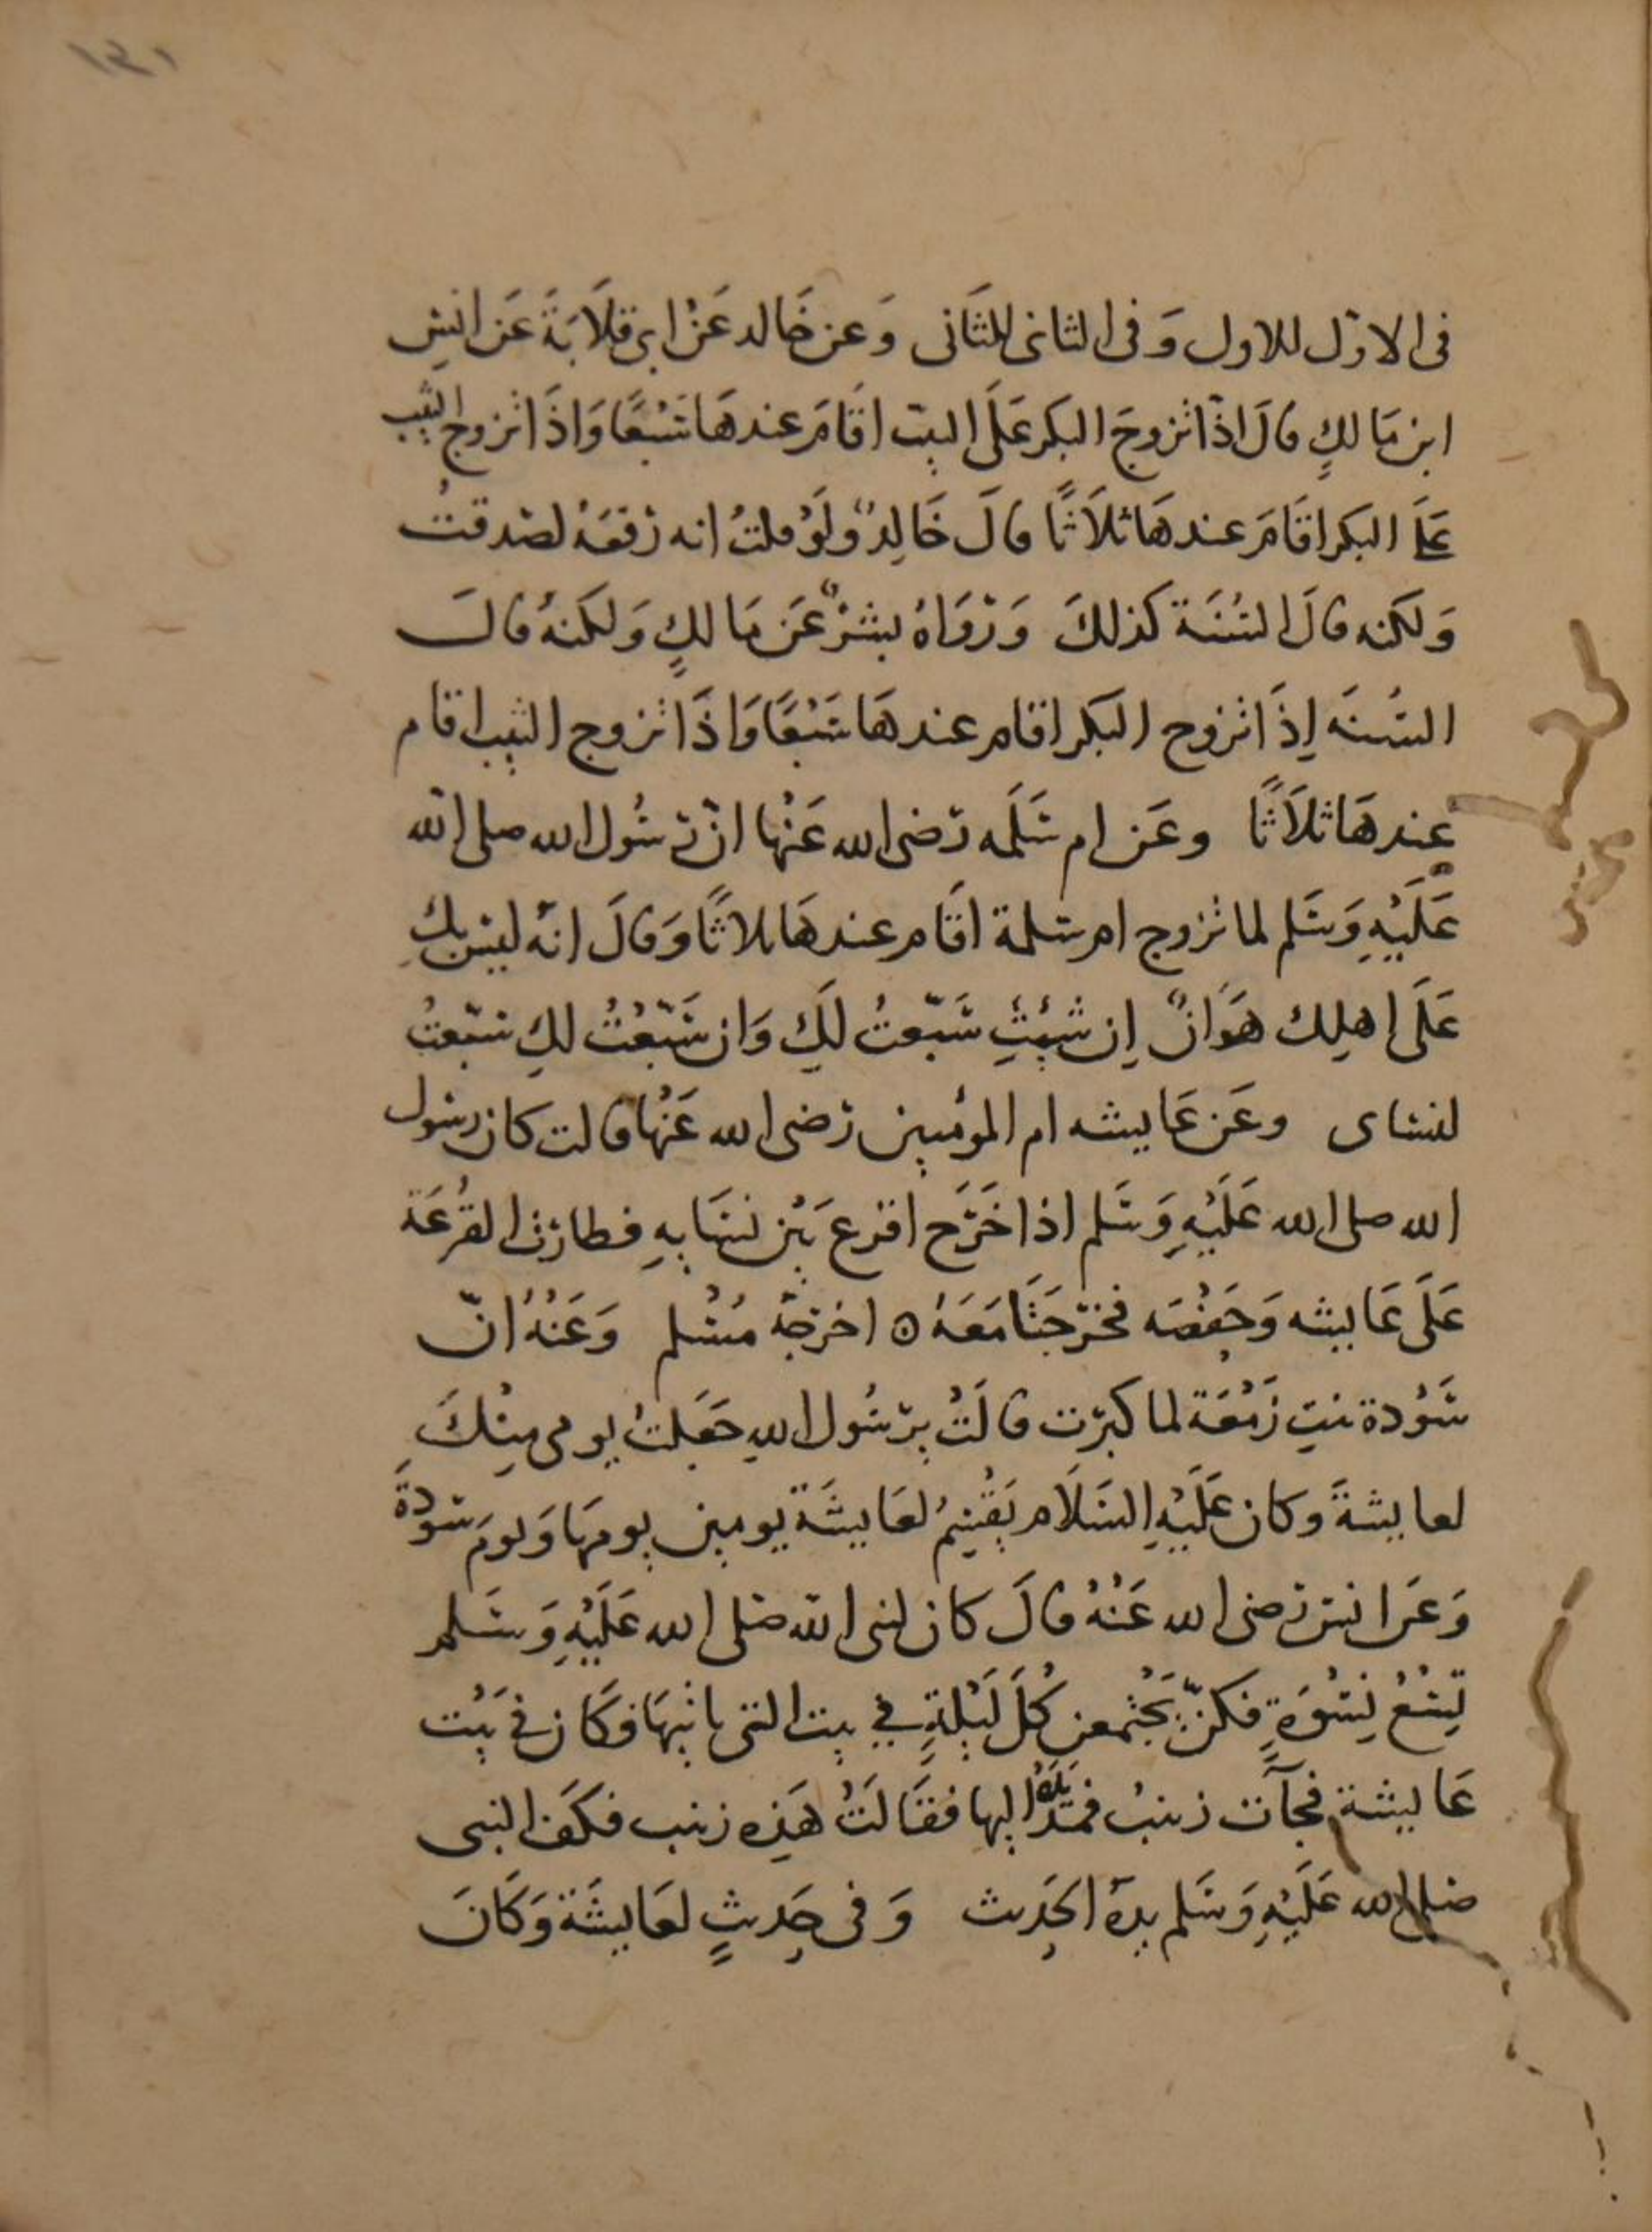 ١٣١
في الاول للاول وَفي الثاني للثَاني وَعن خَالد عَنْ ابي قلَابَةَ عَن انسٍ
ابن مَالكٍ قالَ اذَا تزوجَ البكر عَلَى الثيب اقَامَ عندهَا سَبْعًا وَاذَا تزوج الثيب
عَلَى البكر اقَامَ عندهَا ثلَاثًا قالَ خَالِدٌ وَلَوْ قلتُ انه رَفَعَهُ لصَدقتُ
وَلكنه قالَ السُنَة كذلكَ وَرَوَاهُ بشرٌ عَن مَالكٍ وَلكنهُ قالَ
السُنَه إذَا تزوج البكر اقام عندهَا سَبْعًا وَاذَا تزوج الثيب اقام
عندهَا ثلَاثًا وعَن ام سَلَمه رَضي الله عَنْها انّ رسُول الله صلى الله
عَلَيْهِ وَسَلم لما تزوج ام سلمة اقَام عندهَا ثلاثًا وَقالَ انهُ ليسَ بكِ
عَلَى اهلِك هَوَانٌ إن شئتِ سَبّعتُ لكِ وَان سَبّعْتُ لكِ سَبّعتُ
لنساى وعَن عَايشه ام المؤمنين رَضي الله عَنْها قالت كان رسول
الله صلى الله عَلَيْهِ وَسَلم اذا خَرَج اقرع بَيْن نسَايهِ فطارَت القُرعَة
عَلَى عَايشه وَحَفْصَه فخرَجَتَا مَعَهُ ه اخرَجهُ مُسْلم وَعَنْهُ انّ
سَوْدة بنتِ زَمْعَة لما كبرَت قالَتْ يرسُول اللهِ جَعَلتُ يومى مِنْكَ
لعايشةَ وكان عَلَيْهِ السَلَام يَقْسِمُ لعَايشَة يومين يومهَا وَيومَ سَودَةَ
وَعَن انس رَضي الله عَنْهُ قالَ كان لنبى الله صَلى الله عَلَيْهِ وَسَلم
تِسْعُ نِسْوَةٍ فكنّ يَجْتمعن كُلَ لَيْلةٍ في بيت التى ياتيهَا فكَان في بَيْت
عَايشة فجآت زينبُ فمَدَّ يَدَهُ اليها فقَالَتْ هَذِه زينب فكَفَ النبى
صلى الله عَلَيْهِ وَسَلم يدهُ الحَدِيث وَفى حَدِيثٍ لعَايشَة وَكَانَ